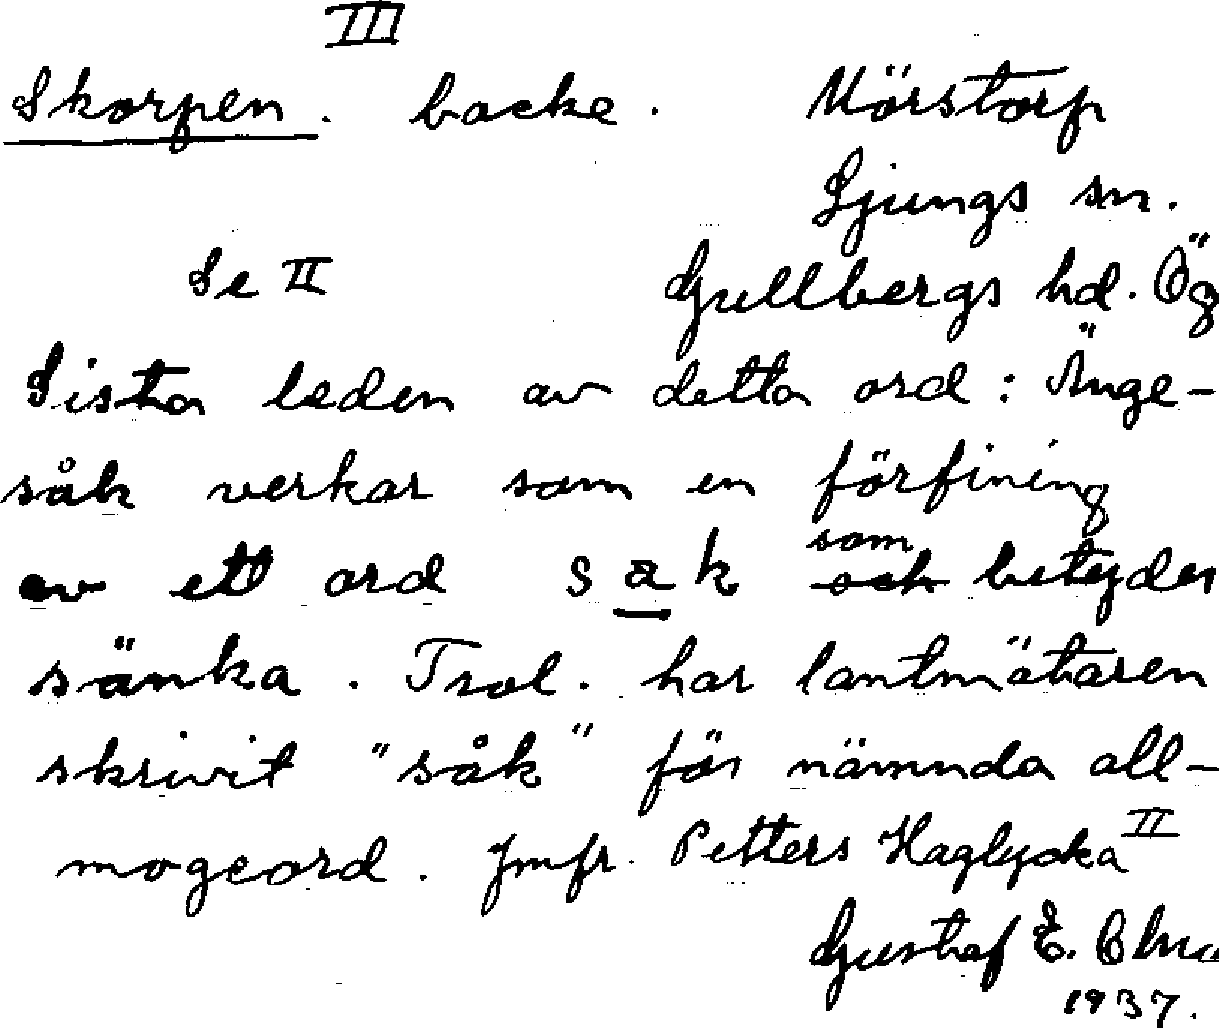 III
Skorpen. backe. Mörstorp
Ljungs sn.
Se II Gullbergs hd. Ög
Sista leden av detta ord: Änge-
såk verkar som en förfining
av ett ord sak som betyder
sänka. Trol. har lantmätaren
skrivit "såk" för nämnda all-
mogeord. Jmfr. Petters Haglycka II
Gustaf E.
1937.